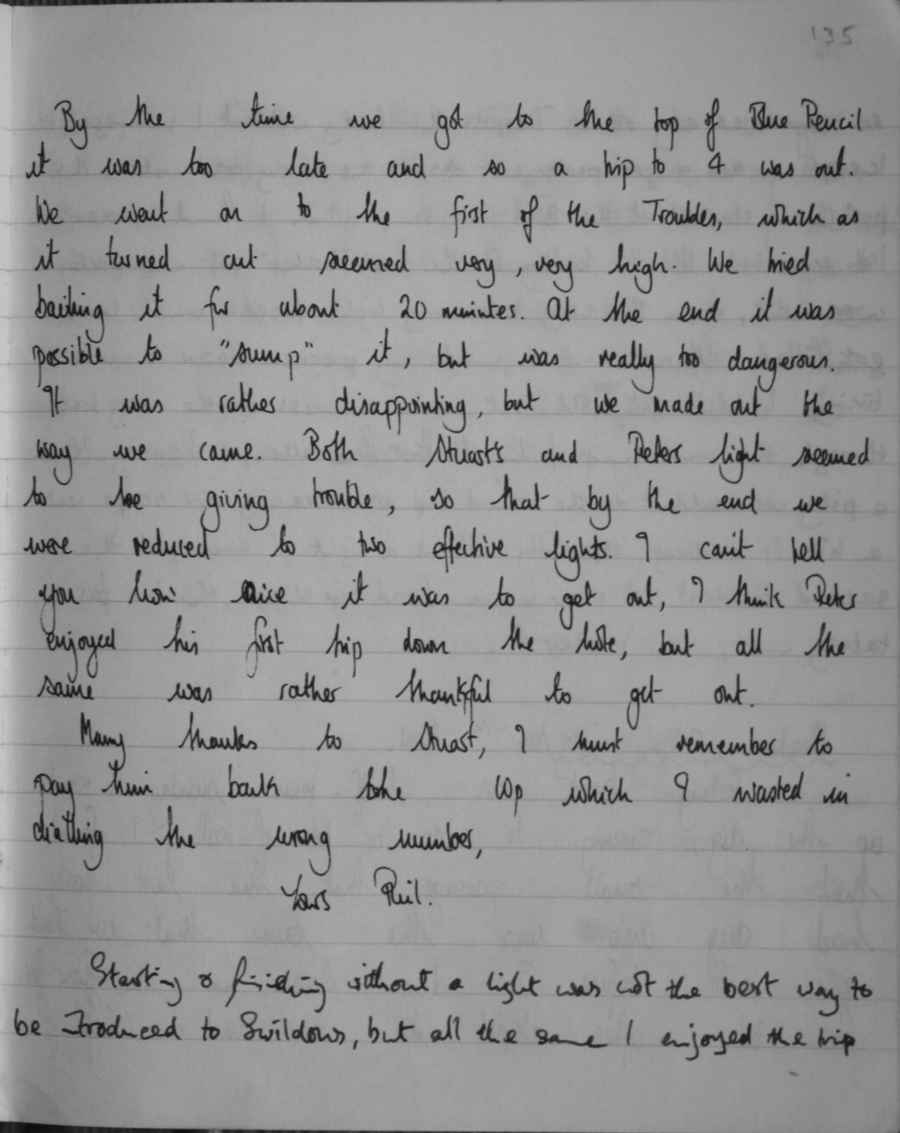 135
By the time we got to the top of Blue Pencil
it was too late and so a trip to 4 was out.
We went on to the first of the Troubles, which as
it turned out seemed very, very high. We tried
bailing it for about 20 minutes. At the end it was
possible to "sump" it, but was really too dangerous.
It was rather disappointing, but we made out the
way we came. Both Stuart's and Peters light seemed
to be giving trouble, so that by the end we
were reduced to two effective lights. I can't tell
you how nice it was to get out, I think Peter
enjoyed his first trip down the hole, but all the
same was rather thankful to get out.
Many thanks to Stuart, I must remember to
pay him back the 10p which I wasted in
dialling the wrong number,
Yours Phil.
Starting & finishing without a light was not the best way to
be introduced to Swildons, but all the same I enjoyed the trip